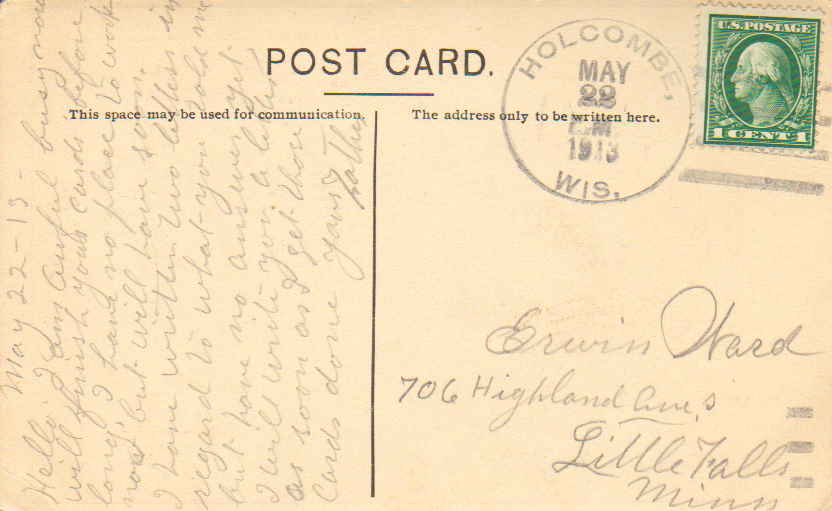 POST CARD.
This space may be used for communication.
The address only to be written here.
HOLCOMBE,
MAY
22
1913
WIS.
U.S.POSTAGE
1 CENT 1
May 22 - 13 -
Hello, I am awful busy now
will finish your cards before
long, I have no place to work
now but will have soon.
I have written two letters in
regard to what you told me
but have no answer yet.
I will write you a letter
as soon as I get those
cards done yours
Erwin Ward
706 Highland Ave, S
Little Falls
Minn